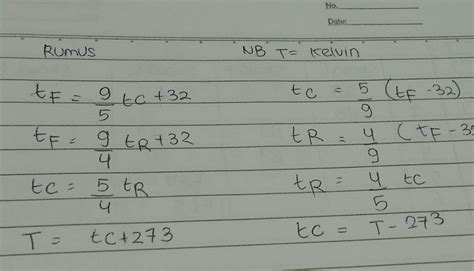 No.
Date:
RUMUS NB T = Kelvin
tF = 9/5 tC + 32 tC = 5/9 (tF - 32)
tF = 9/4 tR + 32 tR = 4/9 (tF - 3
tC = 5/4 tR tR = 4/5 tC
T = tC + 273 tC = T - 273